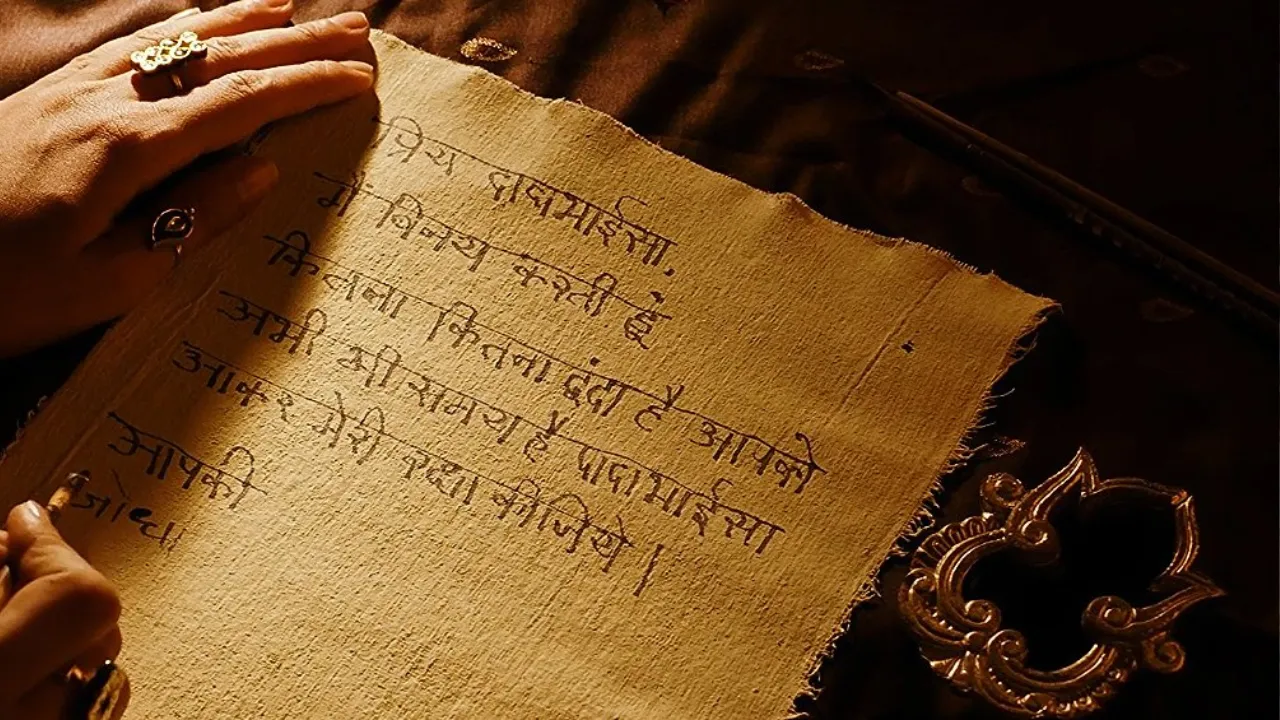 प्रिय दादाभाईसा,
मैं विनय करती हूं
कितना कितना द्वंदा है आपको
अभी भी समय है दादाभाईसा
आकर मेरी रक्षा कीजिये।
आपकी
जोधा